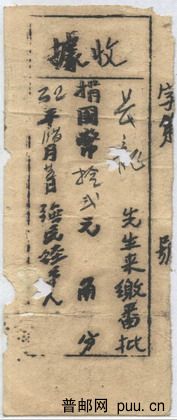 字第 號
收據
先生来繳番批
捐國幣拾弍元 角 分
年腊月 日 經手人
普邮网 puu.cn